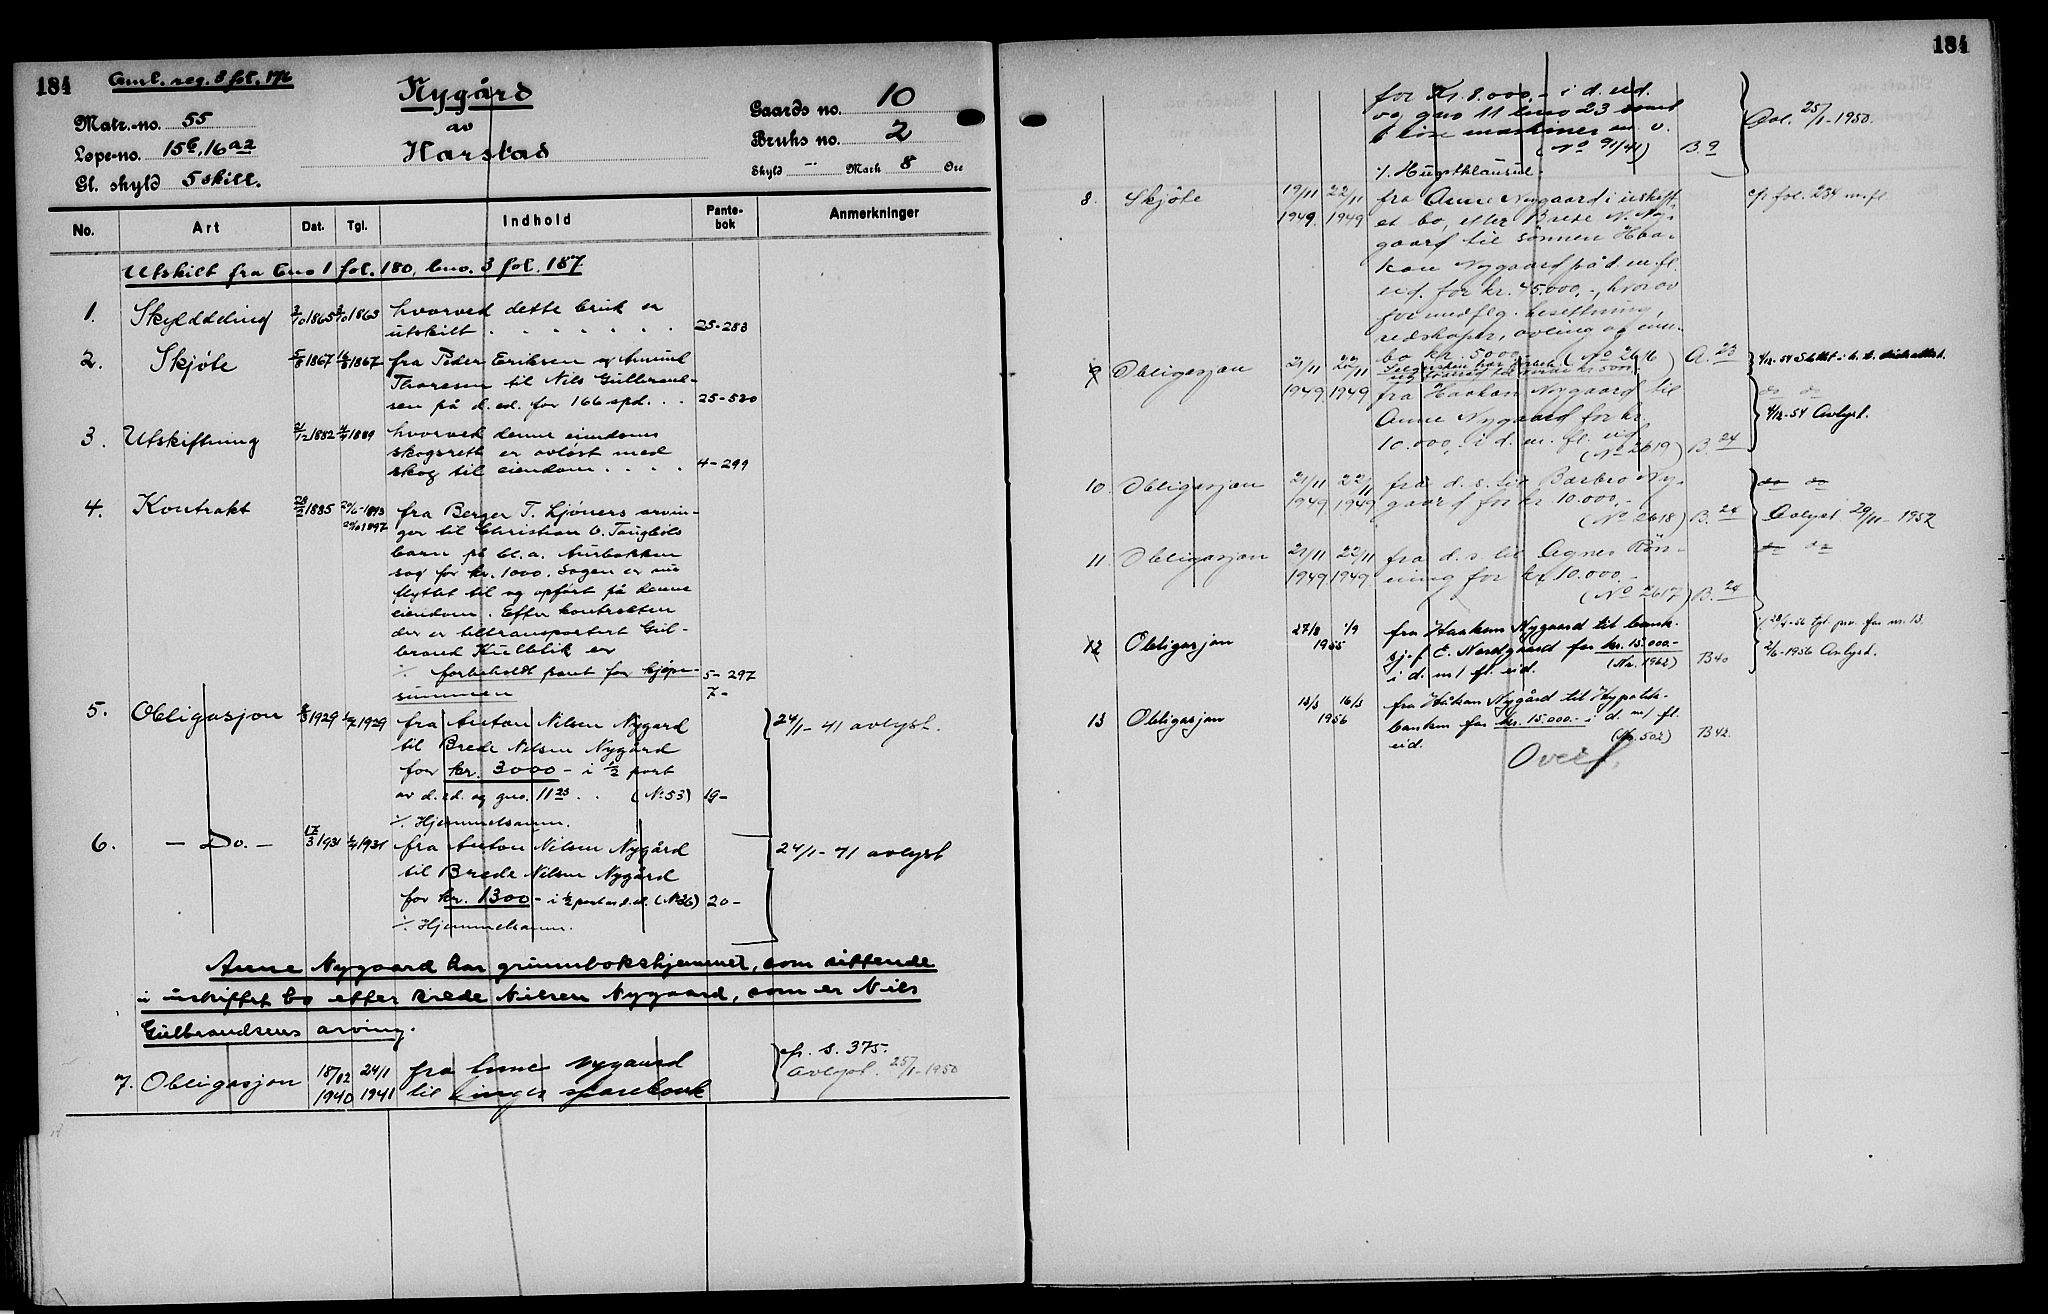 184
Aml. reg. 8 fol. 176
Nygård
av
Harstad
Matr.-no. 55
Løpe-no. 15b, 16a2
Gl. skyld 5 skill.
Gaards no. 10
Bruks no. 2
Skyld -- Mark 8 Øre
No. Art Dat. Tgl. Indhold Pante-bok Anmerkninger
Utskilt fra bno 1 fol. 180, bno. 3 fol. 187
1. Skylddeling 1865 1865 hvorved dette bruk er
utskilt . . . . . . . 25-283
2. Skjøte 5/8 1867 1867 fra Peder Eriksen og Amund
Thoresen til Nils Gulbrand-
sen på d. ed. for 166 spd. . . 25-520
3. Utskiftning 1882 1889 hvorved denne eiendoms
skogsrett er avløst med
skog til eiendom . . . . 4-299
4. Kontrakt 28/2 1885 fra Berger T. Ljöners arvin-
ger til Christian O. Taugbøls
barn på bl. a. Aurbakken
sag for kr. 1000. Sagen er nu
flyttet til og opført på denne
eiendom. Efter kontrakten
der er tiltransportert Gul-
brand Kulblik er
./. forbeholdt pant for kjøpe- 5-297
summen 7-
5. Obligasjon 1929 1929 fra Anton Nilsen Nygård 24/1-41 avlyst.
til Brede Nilsen Nygård
for kr. 3000 - i 1/2 part
av d. ed. og gno. 11 23 . . (No 53) 19-
./. Hjemmelsanm.
6. - Do. - 17/3 1931 1931 fra Anton Nilsen Nygård 24/1-41 avlyst
til Brede Nilsen Nygård
for kr. 1300 - i 1/2 part av d. ed. (No 36) 20-
./. Hjemmelsanm.
Anne Nygaard har grunnbokshjemmel, som sittende
i uskiftet bo efter Brede Nilsen Nygaard, som er Nils
Gulbrandsens arving.
7. Obligasjon 18/12 1940 24/1 1941 fra Anne Nygaard cfr. s. 375.
til Ringer sparebank Avlyst. 25/1-1950
184
for Kr. 8.000,- i d. eid.
og gno 11 bno 23 samt
løse maskiner m. v. Avl. 25/1-1950.
(No 91/41) B. 9
./. Hugstklausul.
8. Skjöte 19/11 1949. 22/11 1949 fra Anne Nygaard i uskift- cfr fol. 234 m. fl.
et bo, efter Brede N. Ny-
gaard til sönnen Haa-
kon Nygaard på d. m. fl.
eid. for kr. 45.000,-, hvorav
for medflg. besetning,
redskaper, avling og inn-
bo kr. 5000,- (No 2616) A. 23
9 Obligasjon 21/11 1949 22/11 1949 fra Haakon Nygaard til
Anne Nygaard for kr. 4/12-54 Avlyst.
10.000,- i d. m. fl. eid
(No 2619) B. 24
10. Obligasjon 21/11 1949 22/11 1949 fra d. s. til Barbro Ny-
gaard for kr 10.000,-
(No 2618) B. 24 Avlyst 29/11-1952
11. Obligasjon 21/11 1949. 22/11 1949. fra d. s. til Agnes Rön-
ning for kr 10.000,-
(No 2617) B. 24
12 Obligasjon 27/8 1/9 1955 fra Haakon Nygaard til bank-
sj. E. Nordgaard for kr. 15.000.-
i d. m/ fl. eid. (Nr. 1962) B 40 2/6-1956 Avlyst.
13 Obligasjon 13/3 16/3 1956 fra Håkon Nygård til Hypotek-
banken for kr. 15.000.- i d. m/ fl.
eid. (Nr. 502) B 42.
Overf.